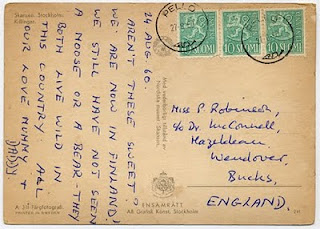 Skansen, Stockholm:
Killingar.
24 AUG 60.
AREN'T THESE SWEET?
WE ARE NOW IN FINLAND!
WE STILL HAVE NOT SEEN
A MOOSE OR A BEAR - THEY
BOTH LIVE WILD IN
THIS COUNTRY. ALL
OUR LOVE MUMMY +
DADDY
PELLO
10 SUOMI
10 SUOMI
10 SUOMI
Miss P. Robinson,
c/o Dr. McConnell,
Hazeldean,
Wendover,
Bucks,
ENGLAND.
Nordiska museet - Skansen
Färgfotografi.
PRINTED IN SWEDEN
ENSAMRÄTT
AB Grafisk Konst, Stockholm